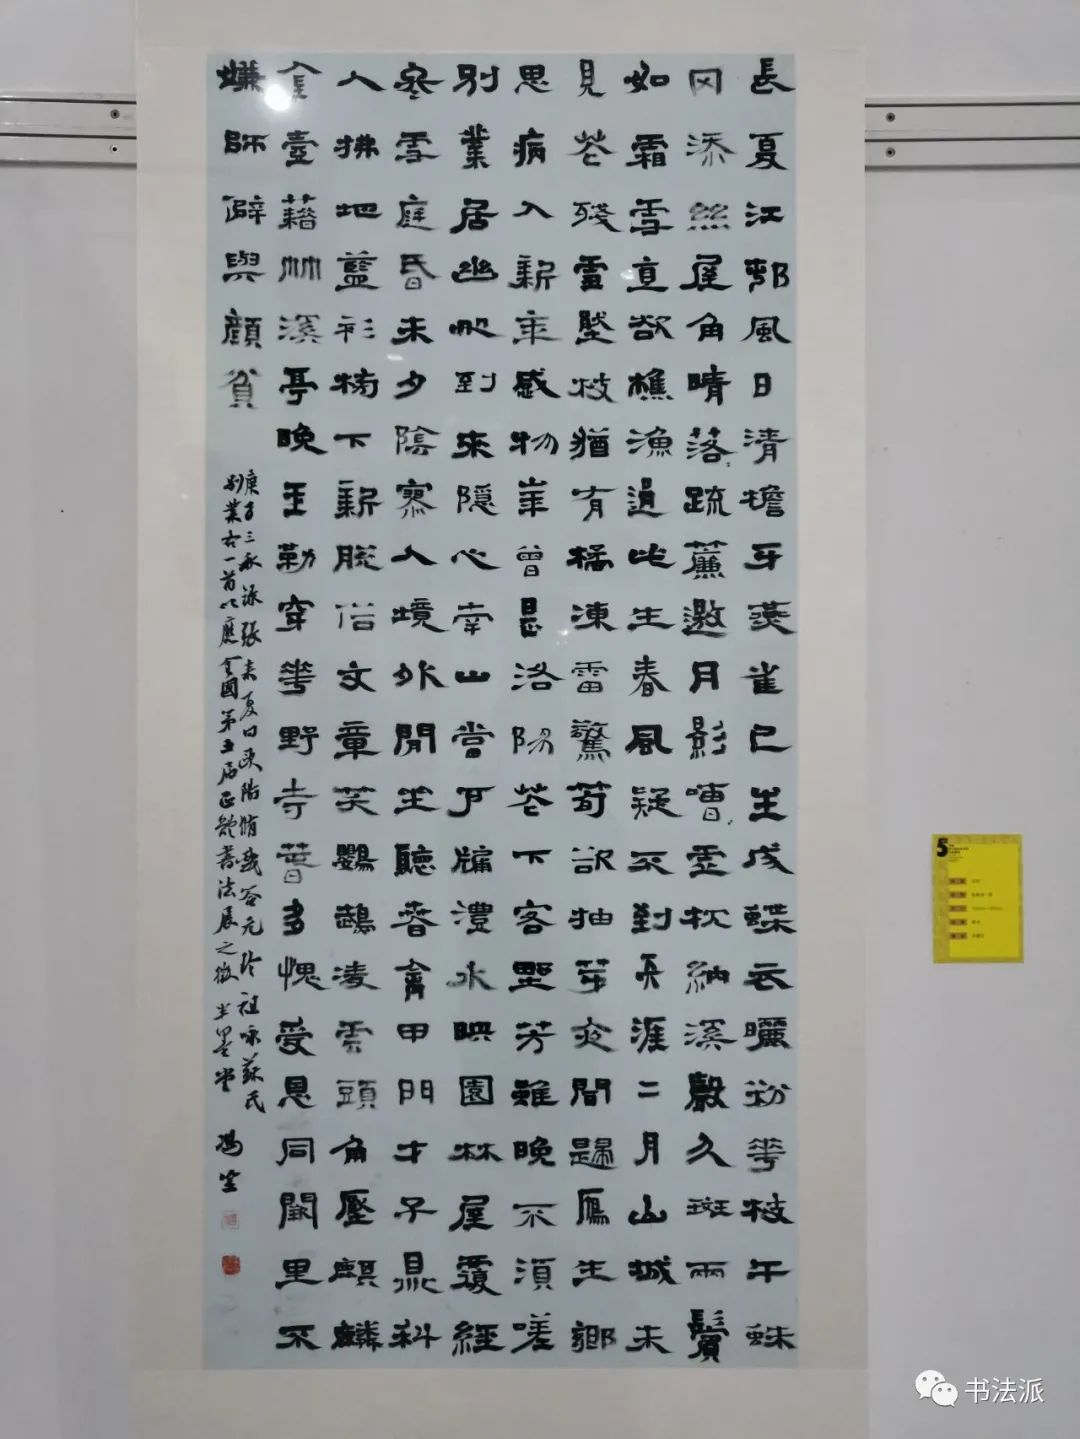 長夏江邨風日清檐牙燕雀已生成蝶衣曬粉花枝午蛛
网添絲屋角晴落〻疏簾邀月影嘈〻虛枕納溪聲久斑兩鬢
如霜雪直欲樵漁過此生春風疑不到天涯二月山城未
見花殘雪壓枝猶有橘凍雷驚筍欲抽芽夜聞歸鴈生鄉
思病入新年感物華曾是洛陽花下客野芳雖晚不須嗟
別業居幽處到來隱心南山當戶牖灃水映園林屋覆經
冬雪庭昏未夕陰寥人境外閒坐聽春禽甲門才子鼎科
人拂地藍衫榜下新脫俗文章笑鸚鵡凌雲頭角壓麒麟
金壺藉艸溪亭晚玉勒穿花野寺春多愧受恩同闕里不
嫌師僻與顏貧
庚子三秋錄張耒夏日歐陽脩戲答元珍祖詠蘇氏
別業右一首以應全國第五屆正體書法展之徵半墨堂
馮
5
书法派